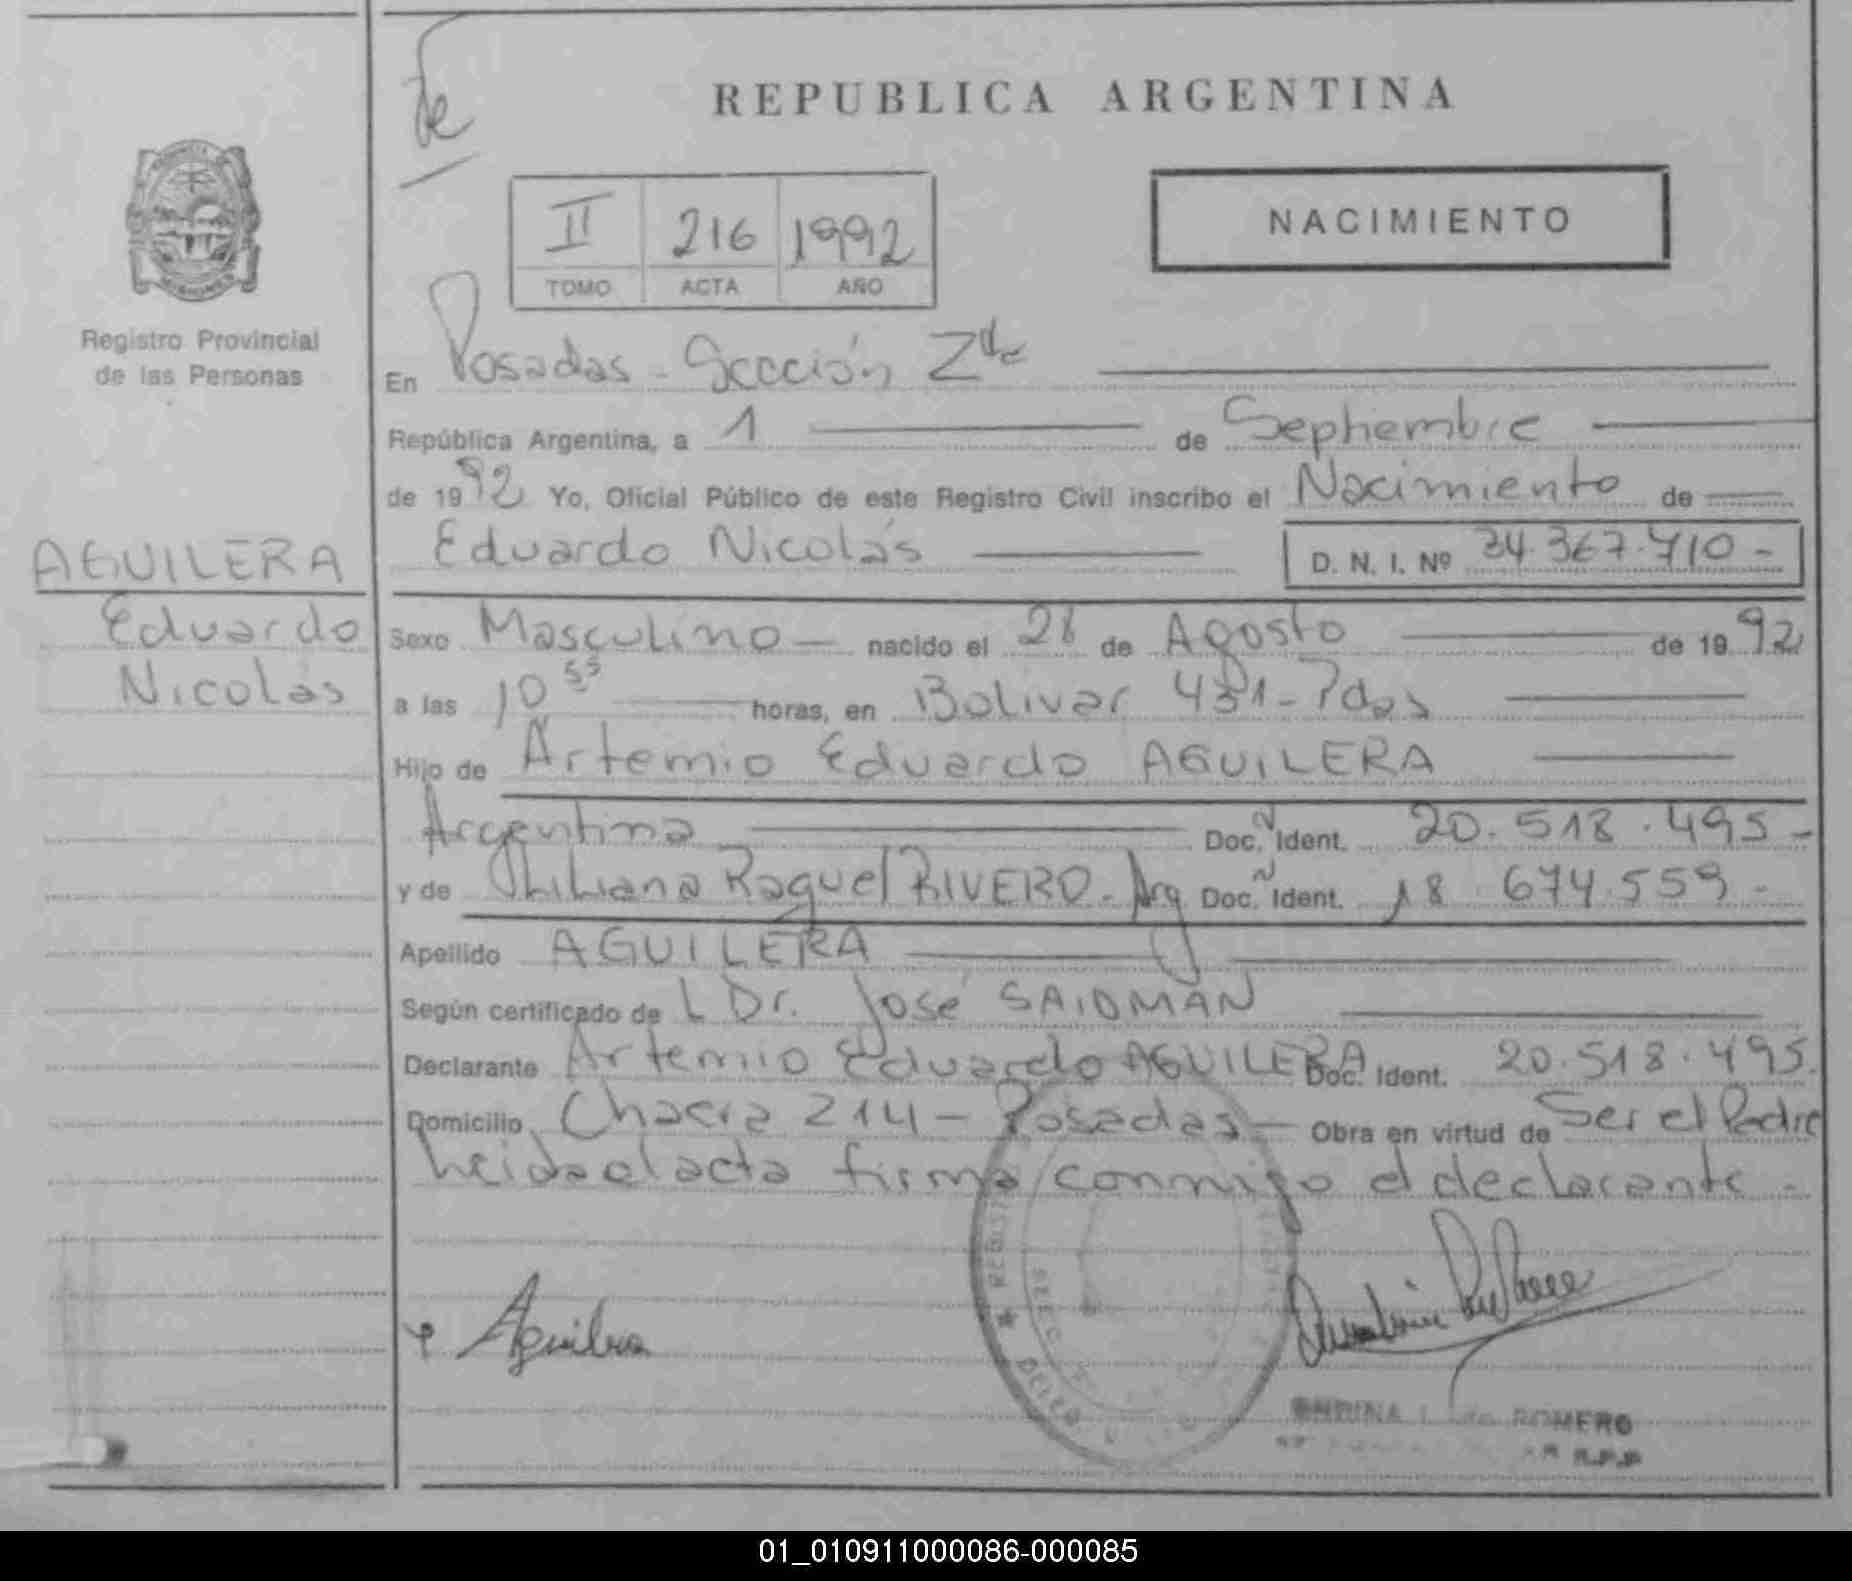 REPUBLICA ARGENTINA
II 216 1992
TOMO ACTA AÑO
NACIMIENTO
Registro Provincial
de las Personas
En Posadas - Sección 2da
República Argentina, a 1 de Septiembre
de 1992 Yo, Oficial Público de este Registro Civil inscribo el Nacimiento de
Eduardo Nicolás D. N. I. Nº 34.367.410-
AGUILERA
Eduardo
Nicolás
Sexo Masculino - nacido el 28 de Agosto de 1992
a las 10 55 horas, en Bolivar 431 - Pdas
Hijo de Artemio Eduardo AGUILERA
Argentina Doc. Ident. 20.518.495-
y de Raquel RIVERO - Arg Doc. Ident. 18 674.559-
Apellido AGUILERA
Según certificado de L Dr. José SAIDMAN
Declarante Artemio Eduardo AGUILERA Doc. Ident. 20.518.495.
Domicilio Chacra 214 - Posadas - Obra en virtud de Ser el Padre
leida el acta firma conmigo el declarante -
Aguilera
ROMERO
01_010911000086-000085